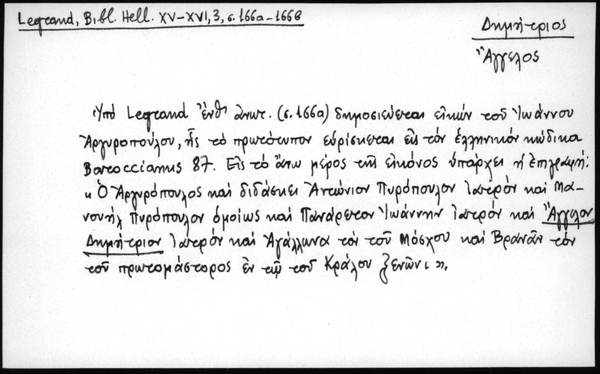 Legrand, Bibl. Hell. XV–XVI, 3, σ. 166α–166β
Δημήτριος
Ἄγγελος
Ὑπὸ Legrand ἔνθ' ἀνωτ. (σ. 166α) δημοσιεύεται εἰκὼν τοῦ Ἰωάννου
Ἀργυροπούλου, ἧς τὸ πρωτότυπον εὑρίσκεται εἰς τὸν ἑλληνικὸν κώδικα
Baroccianus 87. Εἰς τὸ ἄνω μέρος τῆς εἰκόνος ὑπάρχει ἡ ἐπιγραφή:
« Ὁ Ἀργυρόπουλος καὶ διδάσκει Ἀντώνιον Πυρόπουλον ἰατρὸν καὶ Μα-
νουὴλ Πυρόπουλον ὁμοίως καὶ Πανάρετον Ἰωάννην ἰατρὸν καὶ Ἄγγελον
Δημήτριον ἰατρὸν καὶ Ἀγάλλωνα τὸν τοῦ Μόσχου καὶ Βρανᾶν τὸν
τοῦ πρωτομάστορος ἐν τῷ τοῦ Κράλου ξενῶνι ».